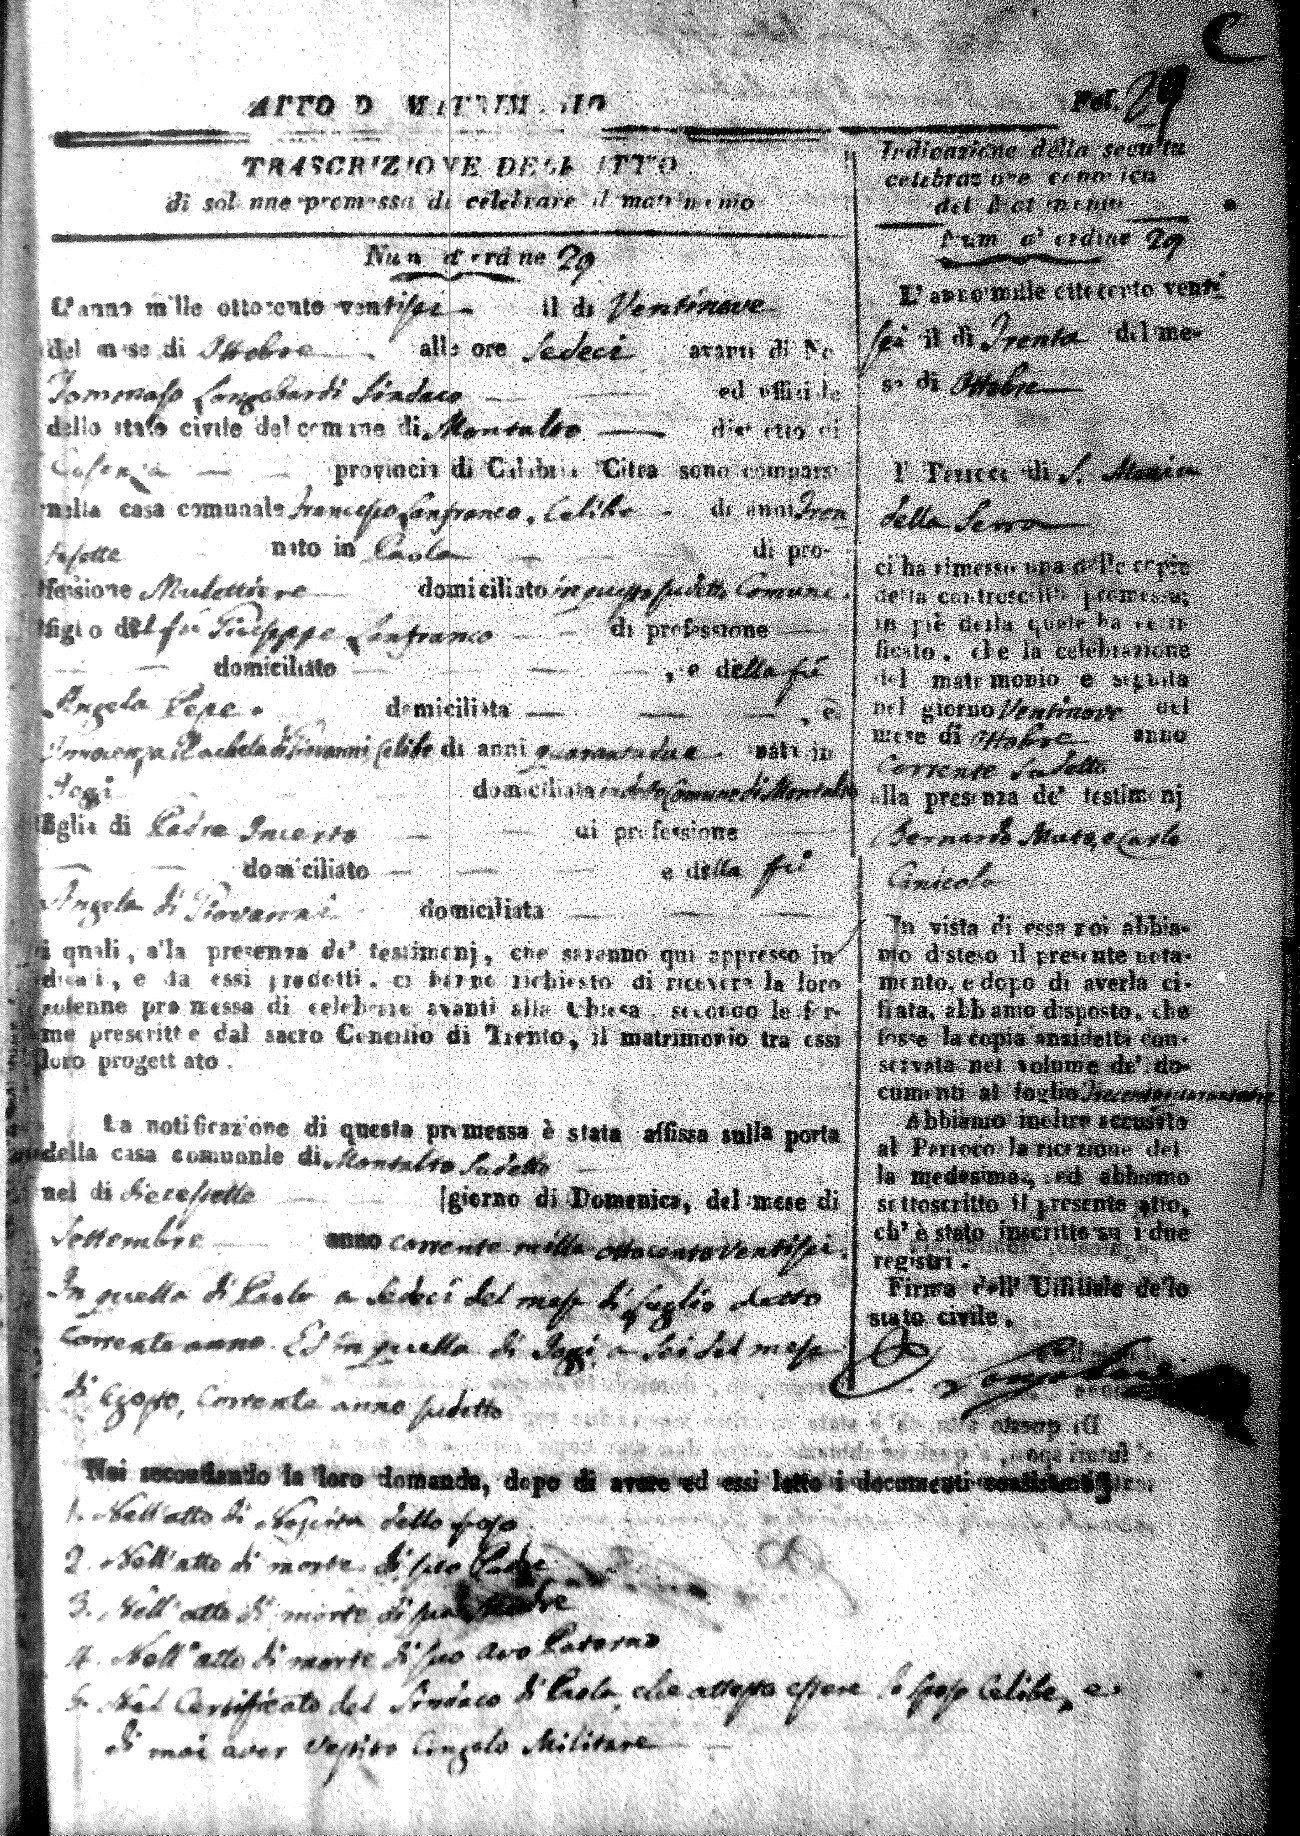 C
ATTO D MATRIMONIO
Fol. 29
TRASCRIZIONE DELL' ATTO
di solenne promessa di celebrare il matrimonio
Num d'ordine 29
L'anno mille ottocento ventisei il di Ventinove
del mese di Ottobre alle ore Sedeci avanti di Noi
Tommaso Longobardi Sindaco ed uffiziale
dello stato civile del comune di Montalto distretto di
Cosenza provincia di Calabria Citra sono comparsi
nella casa comunale Francesco Lanfranco, Celibe di anni Tren
tasette nato in Paola di pro-
fessione Mulettiere domiciliato in questo sudetto Comune.
figlio del fù Giuseppe Lanfranco di professione
domiciliato , e della fù
Angela Pepe. domiciliata , e
Innocenza Rachela di Giovanni Celibe di anni quarantadue nata in
Joggi domiciliata in detto Comune di Montalto
figlia di Padre Incerto di professione
domiciliato e della fù
Angela di Giovanni domiciliata
i quali, alla presenza de' testimonj, che saranno qui appresso in
dicati, e da essi prodotti, ci hanno richiesto di ricevere la loro
solenne promessa di celebrare avanti alla Chiesa, secondo le for-
me prescritte dal sacro Concilio di Trento, il matrimonio tra essi
loro progettato.
La notificazione di questa promessa è stata affissa sulla porta
della casa comunale di Montalto Sudetto
nel di diecesette giorno di Domenica, del mese di
Settembre anno corrente mille ottocento ventisei.
In quella di Paola a Sedeci del mese di Luglio detto
corrente anno. Ed in quella di Joggi a Sei del mese
di Agosto, corrente anno sudetto
Noi secondando la loro domanda, dopo di avere ed essi letto i documenti consistenti
1. Nell'atto di Nascita dello sposo
2. Nell'atto di morte di suo Padre
3. Nell'atto di morte di sua Madre
4. Nell'atto di morte di suo Avo Paterno
5. Nel Certificato del Sindaco di Paola, che attesta essere lo sposo Celibe, e
di mai aver vestito Cingolo Militare
Indicazione della seguita
celebrazione canonica
del Matrimonio
Num d'ordine 29
L'anno mille ottocento venti
sei il di Trenta del me-
se di Ottobre
il Parroco di S. Maria
della Serra
ci ha rimesso una delle copie
della controscritta promessa,
in piè della quale ha certi-
ficato, che la celebrazione
del matrimonio è seguita
nel giorno Ventinove del
mese di Ottobre anno
corrente Sudetto
alla presenza de' testimonj
Bernardo Muto, e Carlo
Cinicolo
In vista di essa noi abbia-
mo disteso il presente nota-
mento, e dopo di averla ci-
frata, abbiamo disposto, che
fosse la copia anzidetta con-
servata nel volume de' do-
cumenti al foglio
Abbiamo inoltre accusato
al Parroco la ricezione del
la medesima, ed abbiamo
sottoscritto il presente atto,
ch' è stato inscritto su i due
registri.
Firma dell' Uffiziale dello
stato civile.
Longobardi